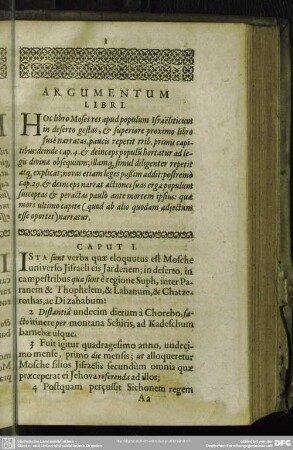 1
ARGUMENTUM
LIBRI.
HOc libro Mosei res apud populum Israëliticum
in deserto gestas, & superiore proximo libro
fusè narratas, paucis repetit trib. primis capi-
tibus: deinde cap. 4. & deinceps populū hortatur ad le-
gis divinæ obsequium; illamq́, simul diligenter repetit
atq́, explicat; novas etiam leges passim addit: postremò
cap. 29. & deinceps narrat actiones suas erga populum
susceptas & peractas paulo ante mortem ipsius: quæ
mors ultimo capite (quod ab alio quodam adjectum
esse oportet) narratur.
CAPUT I.
ISTA sunt verba quæ eloquutus est Mosche
universo Jisraëli cis Jardenem; in deserto, in
campestribus quæ sunt è regione Suph, inter Pa-
ranem & Thophelem, & Labanum, & Chatze-
rothas, ac Dizahabum:
2 Distantiâ undecim dierum à Chorebo, fa-
cto itinere per montana Sehiris, ad Kadeschum
barneha usque.
3 Fuit igitur quadragesimo anno, undeci-
mo mense, primo die mensis; ut alloqueretur
Mosche filios Jisraëlis secundùm omnia quæ
præceperat ei Jehova referenda ad illos;
4 Postquam percussit Sichonem regem
Aa